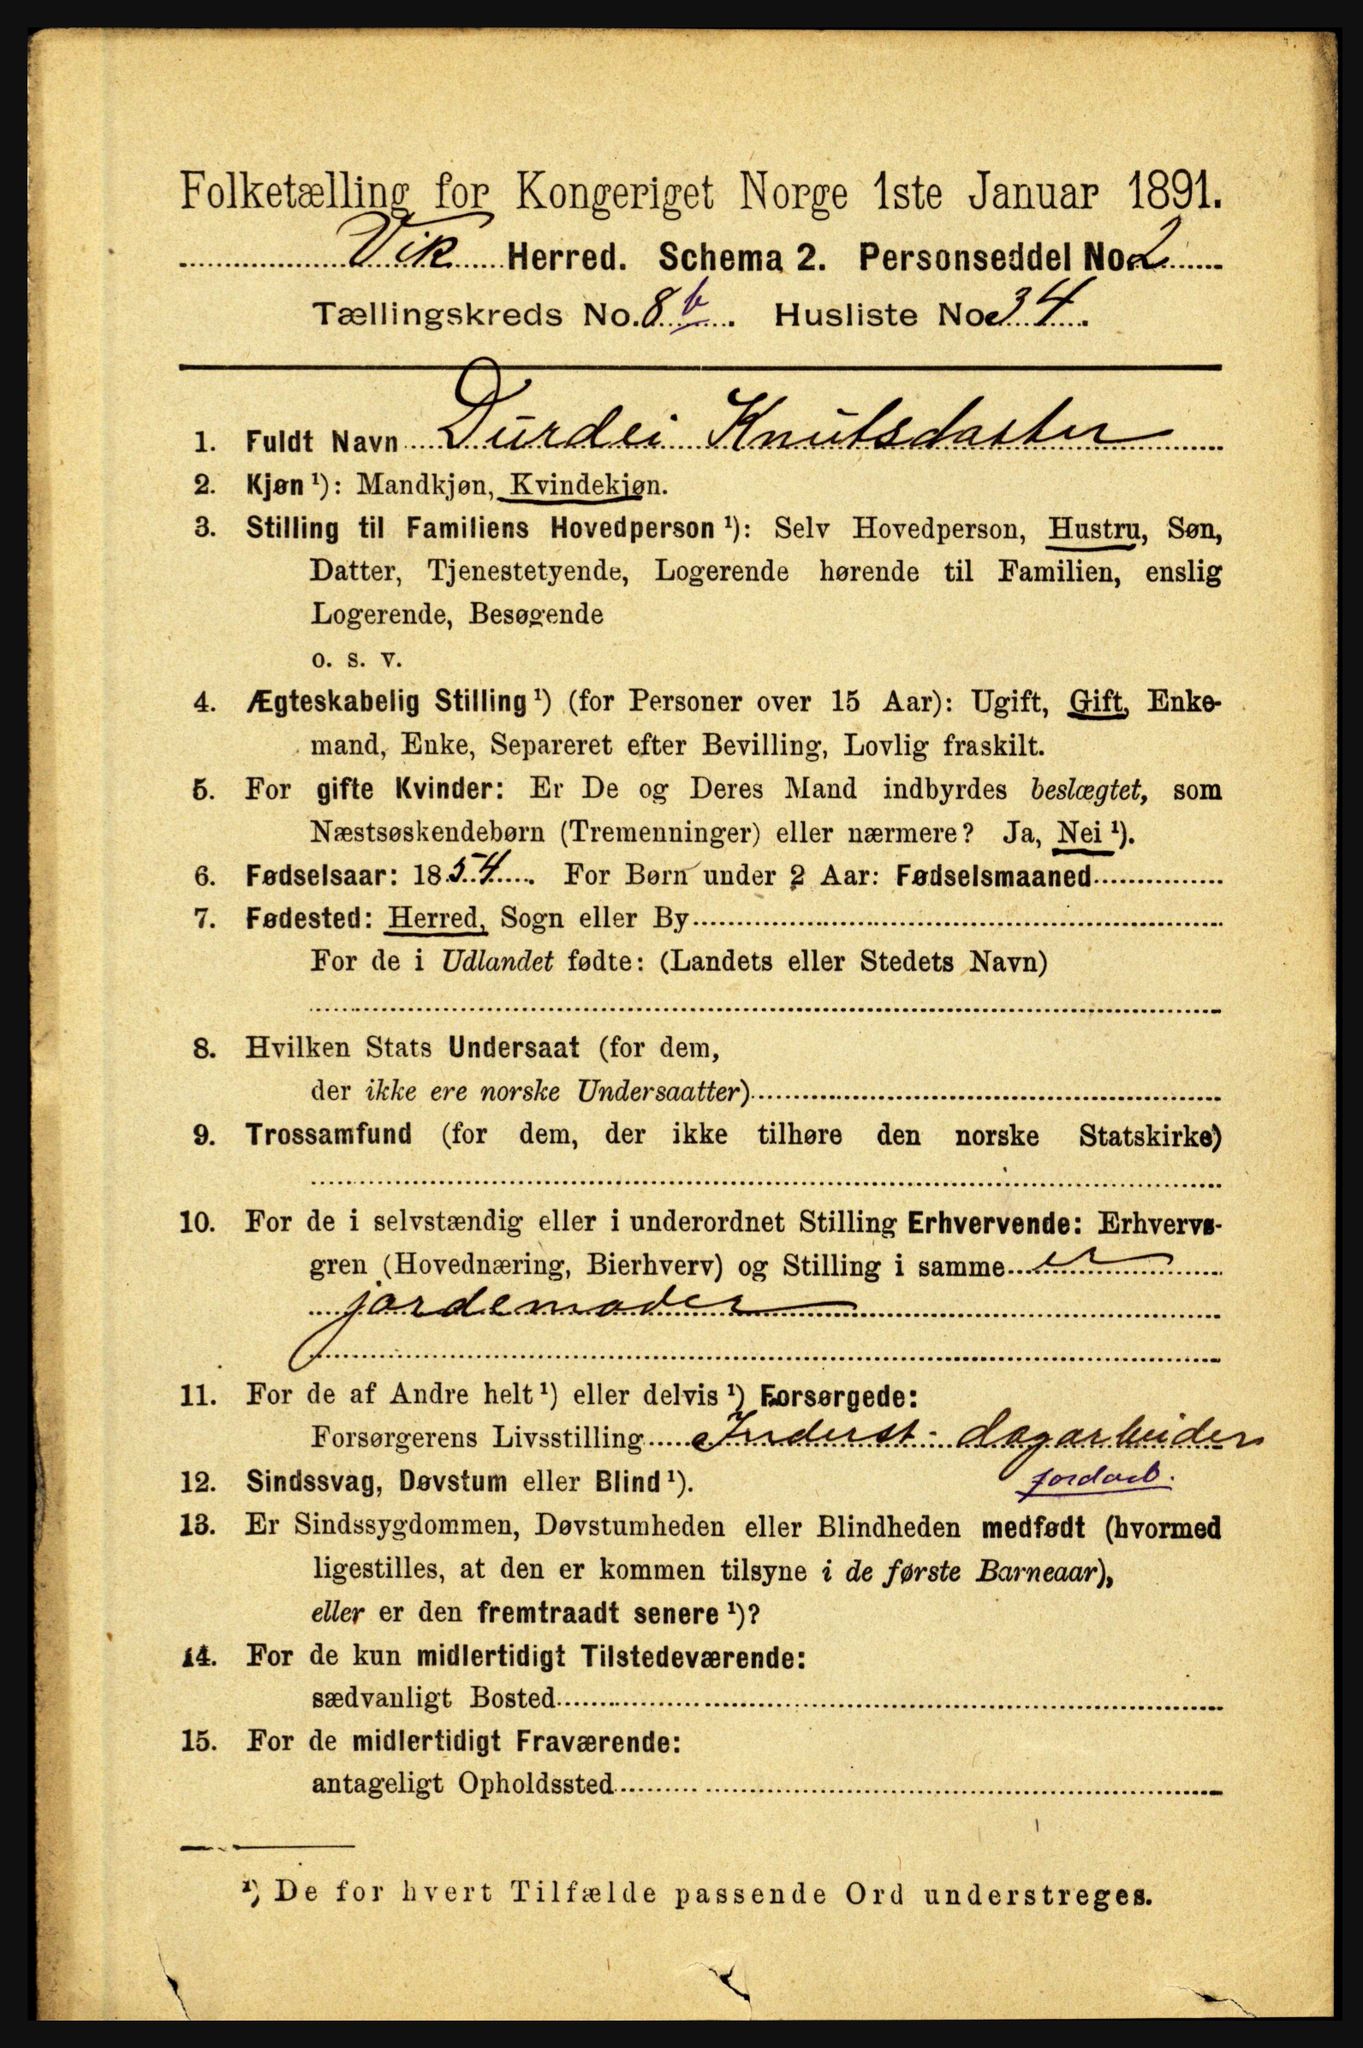 Folketælling for Kongeriget Norge 1ste Januar 1891.
Vik Herred. Schema 2. Personseddel No. 2
Tællingskreds No. 8 b. Husliste No. 34.
1. Fuldt Navn Durdei Knutsdatter
2. Kjøn ¹): Mandkjøn, Kvindekjøn.
3. Stilling til Familiens Hovedperson ¹): Selv Hovedperson, Hustru, Søn,
Datter, Tjenestetyende, Logerende hørende til Familien, enslig
Logerende, Besøgende
o. s. v.
4. Ægteskabelig Stilling ¹) (for Personer over 15 Aar): Ugift, Gift, Enke-
mand, Enke, Separeret efter Bevilling, Lovlig fraskilt.
5. For gifte Kvinder: Er De og Deres Mand indbyrdes beslægtet, som
Næstsøskendebørn (Tremenninger) eller nærmere? Ja, Nei ¹).
6. Fødselsaar: 1854. For Børn under 2 Aar: Fødselsmaaned
7. Fødested: Herred, Sogn eller By
For de i Udlandet fødte: (Landets eller Stedets Navn)
8. Hvilken Stats Undersaat (for dem,
der ikke ere norske Undersaatter)
9. Trossamfund (for dem, der ikke tilhøre den norske Statskirke)
10. For de i selvstændig eller i underordnet Stilling Erhvervende: Erhvervs-
gren (Hovednæring, Bierhverv) og Stilling i samme er
jordemoder
11. For de af Andre helt ¹) eller delvis ¹) Forsørgede:
Forsørgerens Livsstilling Inderst - dagarbeider
12. Sindssvag, Døvstum eller Blind ¹). jordarb.
13. Er Sindssygdommen, Døvstumheden eller Blindheden medfødt (hvormed
ligestilles, at den er kommen tilsyne i de første Barneaar),
eller er den fremtraadt senere ¹)?
14. For de kun midlertidigt Tilstedeværende:
sædvanligt Bosted
15. For de midlertidigt Fraværende:
antageligt Opholdssted
¹) De for hvert Tilfælde passende Ord understreges.